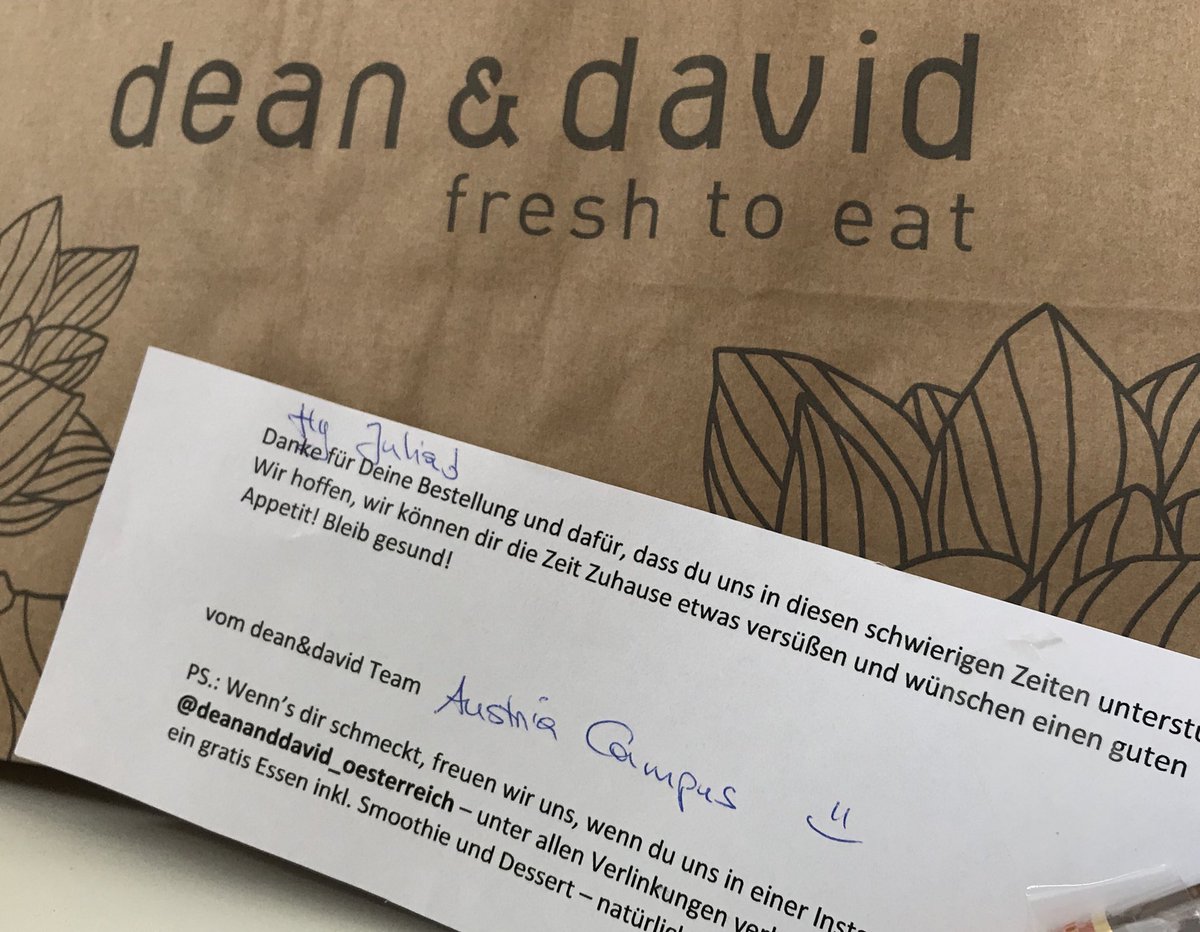 dean & david
fresh to eat
Hy Julia
Danke für Deine Bestellung und dafür, dass du uns in diesen schwierigen Zeiten unterstü
Wir hoffen, wir können dir die Zeit Zuhause etwas versüßen und wünschen einen guten
Appetit! Bleib gesund!
vom dean&david Team Austria Campus
PS.: Wenn's dir schmeckt, freuen wir uns, wenn du uns in einer Inst
@deananddavid_oesterreich – unter allen Verlinkungen ver
ein gratis Essen inkl. Smoothie und Dessert – natürlic